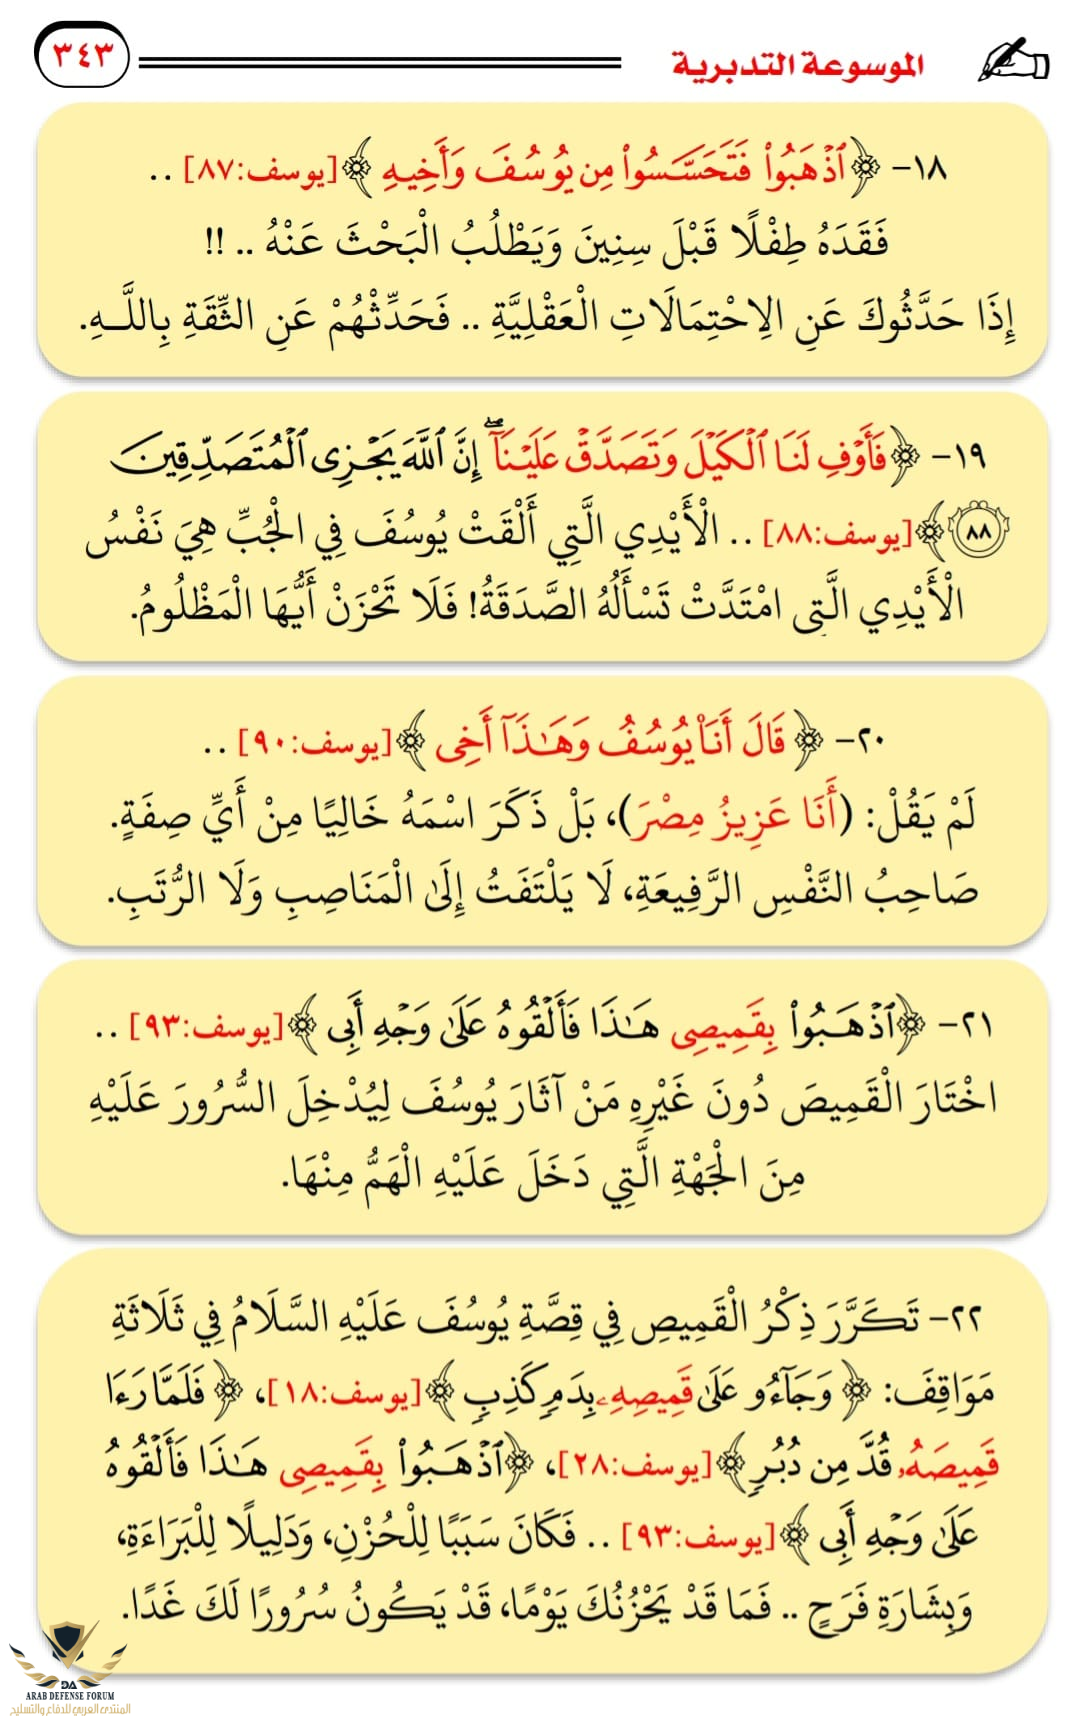 الموسوعة التدبرية
٣٤٣
١٨- ﴿ٱذْهَبُوا۟ فَتَحَسَّسُوا۟ مِن يُوسُفَ وَأَخِيهِ﴾ [يوسف:٨٧] ..
فَقَدَهُ طِفْلًا قَبْلَ سِنِينَ وَيَطْلُبُ الْبَحْثَ عَنْهُ .. !!
إِذَا حَدَّثُوكَ عَنِ الِاحْتِمَالَاتِ الْعَقْلِيَّةِ .. فَحَدِّثْهُمْ عَنِ الثِّقَةِ بِاللَّـهِ.
١٩- ﴿فَأَوْفِ لَنَا ٱلْكَيْلَ وَتَصَدَّقْ عَلَيْنَآ ۖ إِنَّ ٱللَّهَ يَجْزِى ٱلْمُتَصَدِّقِينَ
٨٨﴾ [يوسف:٨٨] .. الْأَيْدِي الَّتِي أَلْقَتْ يُوسُفَ فِي الْجُبِّ هِيَ نَفْسُ
الْأَيْدِي الَّتِي امْتَدَّتْ تَسْأَلُهُ الصَّدَقَةُ! فَلَا تَحْزَنْ أَيُّهَا الْمَظْلُومُ.
٢٠- ﴿قَالَ أَنَا۠ يُوسُفُ وَهَـٰذَآ أَخِى﴾ [يوسف:٩٠] ..
لَمْ يَقُلْ: (أَنَا عَزِيزُ مِصْرَ)، بَلْ ذَكَرَ اسْمَهُ خَالِيًا مِنْ أَيِّ صِفَةٍ.
صَاحِبُ النَّفْسِ الرَّفِيعَةِ، لَا يَلْتَفَتُ إِلَى الْمَنَاصِبِ وَلَا الرُّتَبِ.
٢١- ﴿ٱذْهَبُوا۟ بِقَمِيصِى هَـٰذَا فَأَلْقُوهُ عَلَىٰ وَجْهِ أَبِى﴾ [يوسف:٩٣] ..
اخْتَارَ الْقَمِيصَ دُونَ غَيْرِهِ مَنْ آثَارَ يُوسُفَ لِيُدْخِلَ السُّرُورَ عَلَيْهِ
مِنَ الْجَهْةِ الَّتِي دَخَلَ عَلَيْهِ الْهَمُّ مِنْهَا.
٢٢- تَكَرَّرَ ذِكْرُ الْقَمِيصِ فِي قِصَّةِ يُوسُفَ عَلَيْهِ السَّلَامُ فِي ثَلَاثَةِ
مَوَاقِفَ: ﴿وَجَآءُو عَلَىٰ قَمِيصِهِۦ بِدَمٍ كَذِبٍ﴾ [يوسف:١٨]، ﴿فَلَمَّا رَءَا
قَمِيصَهُۥ قُدَّ مِن دُبُرٍ﴾ [يوسف:٢٨]، ﴿ٱذْهَبُوا۟ بِقَمِيصِى هَـٰذَا فَأَلْقُوهُ
عَلَىٰ وَجْهِ أَبِى﴾ [يوسف:٩٣] .. فَكَانَ سَبَبًا لِلْحُزْنِ، وَدَلِيلًا لِلْبَرَاءَةِ،
وَبِشَارَةِ فَرَحٍ .. فَمَا قَدْ يَحْزُنُكَ يَوْمًا، قَدْ يَكُونُ سُرُورًا لَكَ غَدًا.
DA
ARAB DEFENSE FORUM
المنتدى العربي للدفاع والتسليح